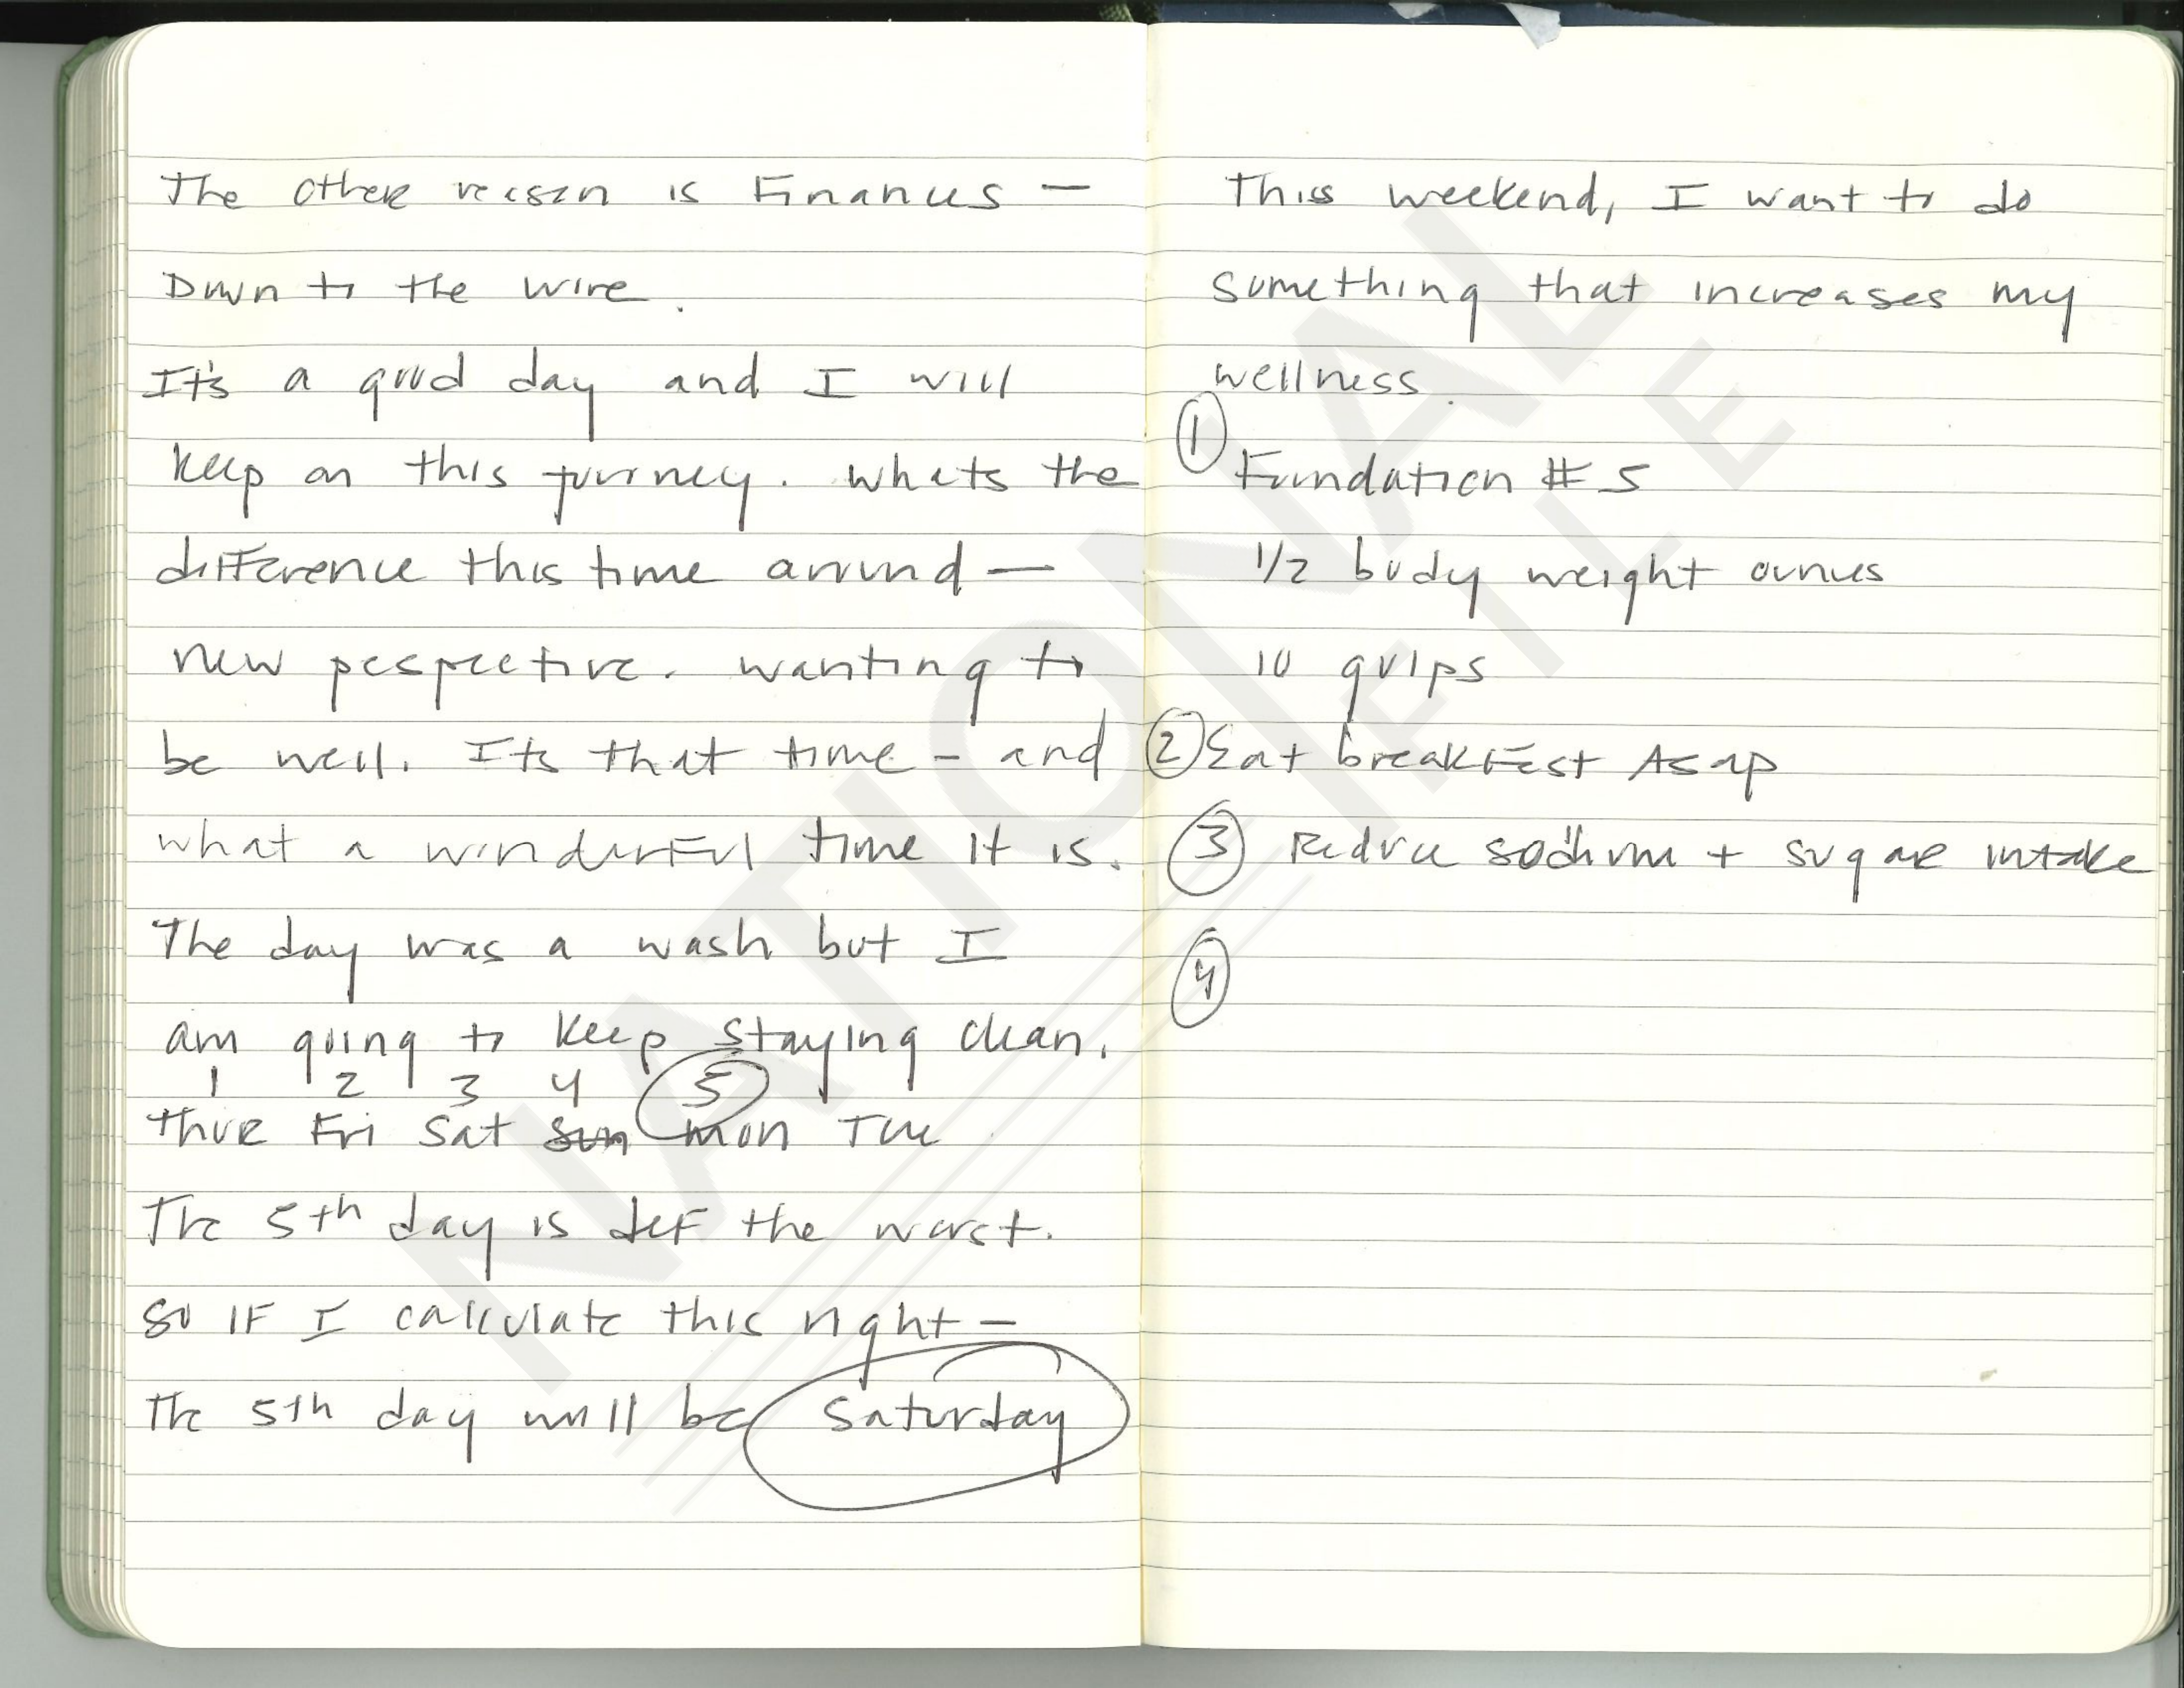 The other reason is Finances —
Down to the wire.
It's a good day and I will
keep on this journey. Whats the
difference this time around —
new pespective. Wanting to
be well. Its that time - and
what a wonderful time it is.
The day was a wash but I
am going to keep staying clean.
1 2 3 4 5
thur Fri Sat Sun Mon Tue
The 5th day is def the worst.
So if I calculate this right —
The 5th day will be Saturday
This weekend, I want to do
something that increases my
wellness.
① Foundation # 5
1/2 body weight ounces
10 gulps
② Eat breakfast Asap
③ Reduce sodium + sugar intake
④
NATIONAL
FILE